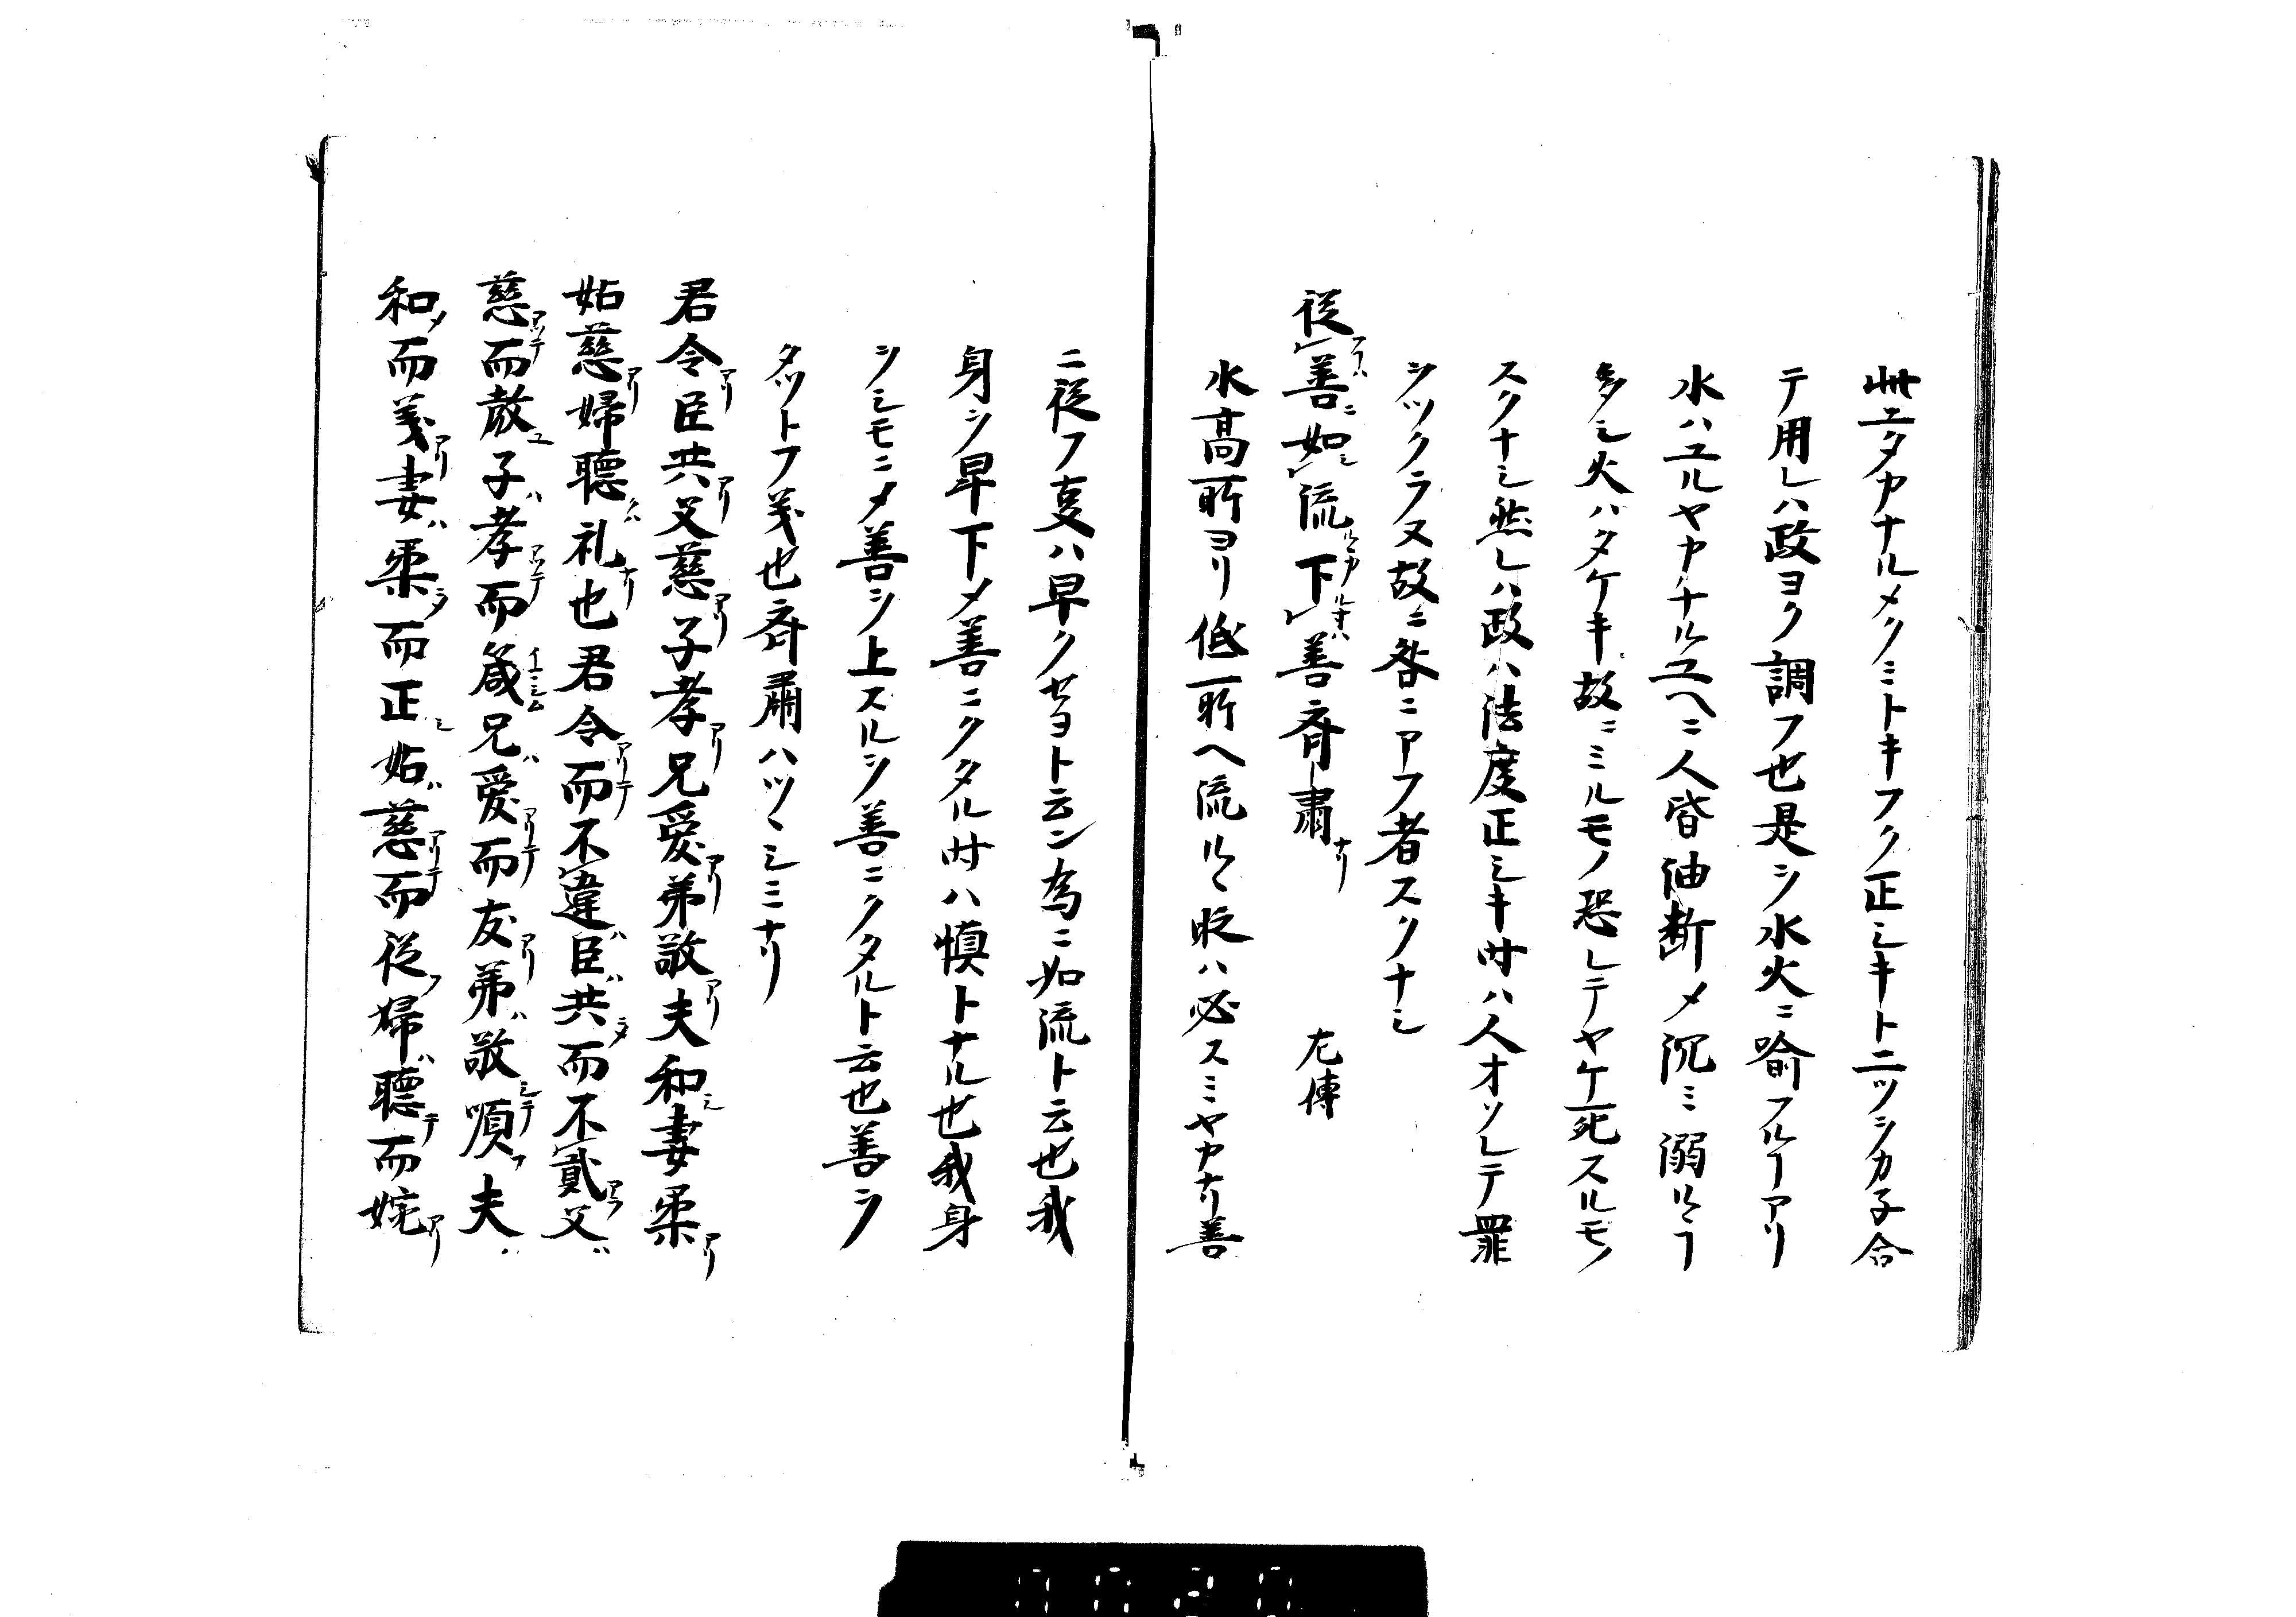 此ユタカナルメクミトキフク正シキト二ツシカ子合
テ用レハ政ヨク調フ也是ヲ水火ニ喩フルヿアリ
水ハユルヤカナルユヘニ人皆油断〆沉ミ溺ルヽヿ
多シ火ハタケキ故ニミルモノ恐レテヤケ死スルモノ
スクナシ然レハ政ハ法度正シキ时ハ人オソレテ罪
ヲツクラヌ故ニ咎ニアフ者スクナシ
従善如流下善齊肅ナリ 左傳
水高所ヨリ低所ヘ流ルヽ㕝ハ必スミヤカナリ善
ニ従フ㕝ハ早クセヨト云ン為ニ如流ト云也我
身ヲ卑下〆善ニクタル时ハ慎トナル也我身
ヲシモニ〆善ヲ上スルヲ善ニクタルト云也善ヲ
タツトフ義也齊肅ハツヽシミナリ
君令臣共父慈子孝兄愛弟敬夫和妻柔
姑慈婦聴礼也君令而不違臣共而不貳父
慈而敎子孝而箴兄愛而友弟敬順夫
和而義妻柔而正姑慈而従婦聴而婉